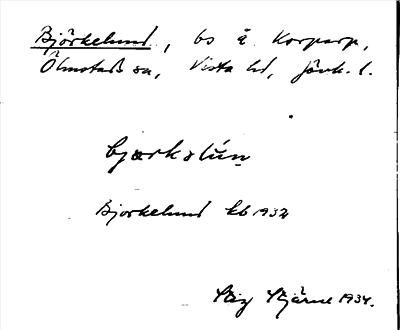 Björkelund, bs å Korparp,
Ölmstads sn, Vista hd, Jönk. l.
bjærkəlúṇ
Björkelund kb 1932
Stig Stjärne 1934.